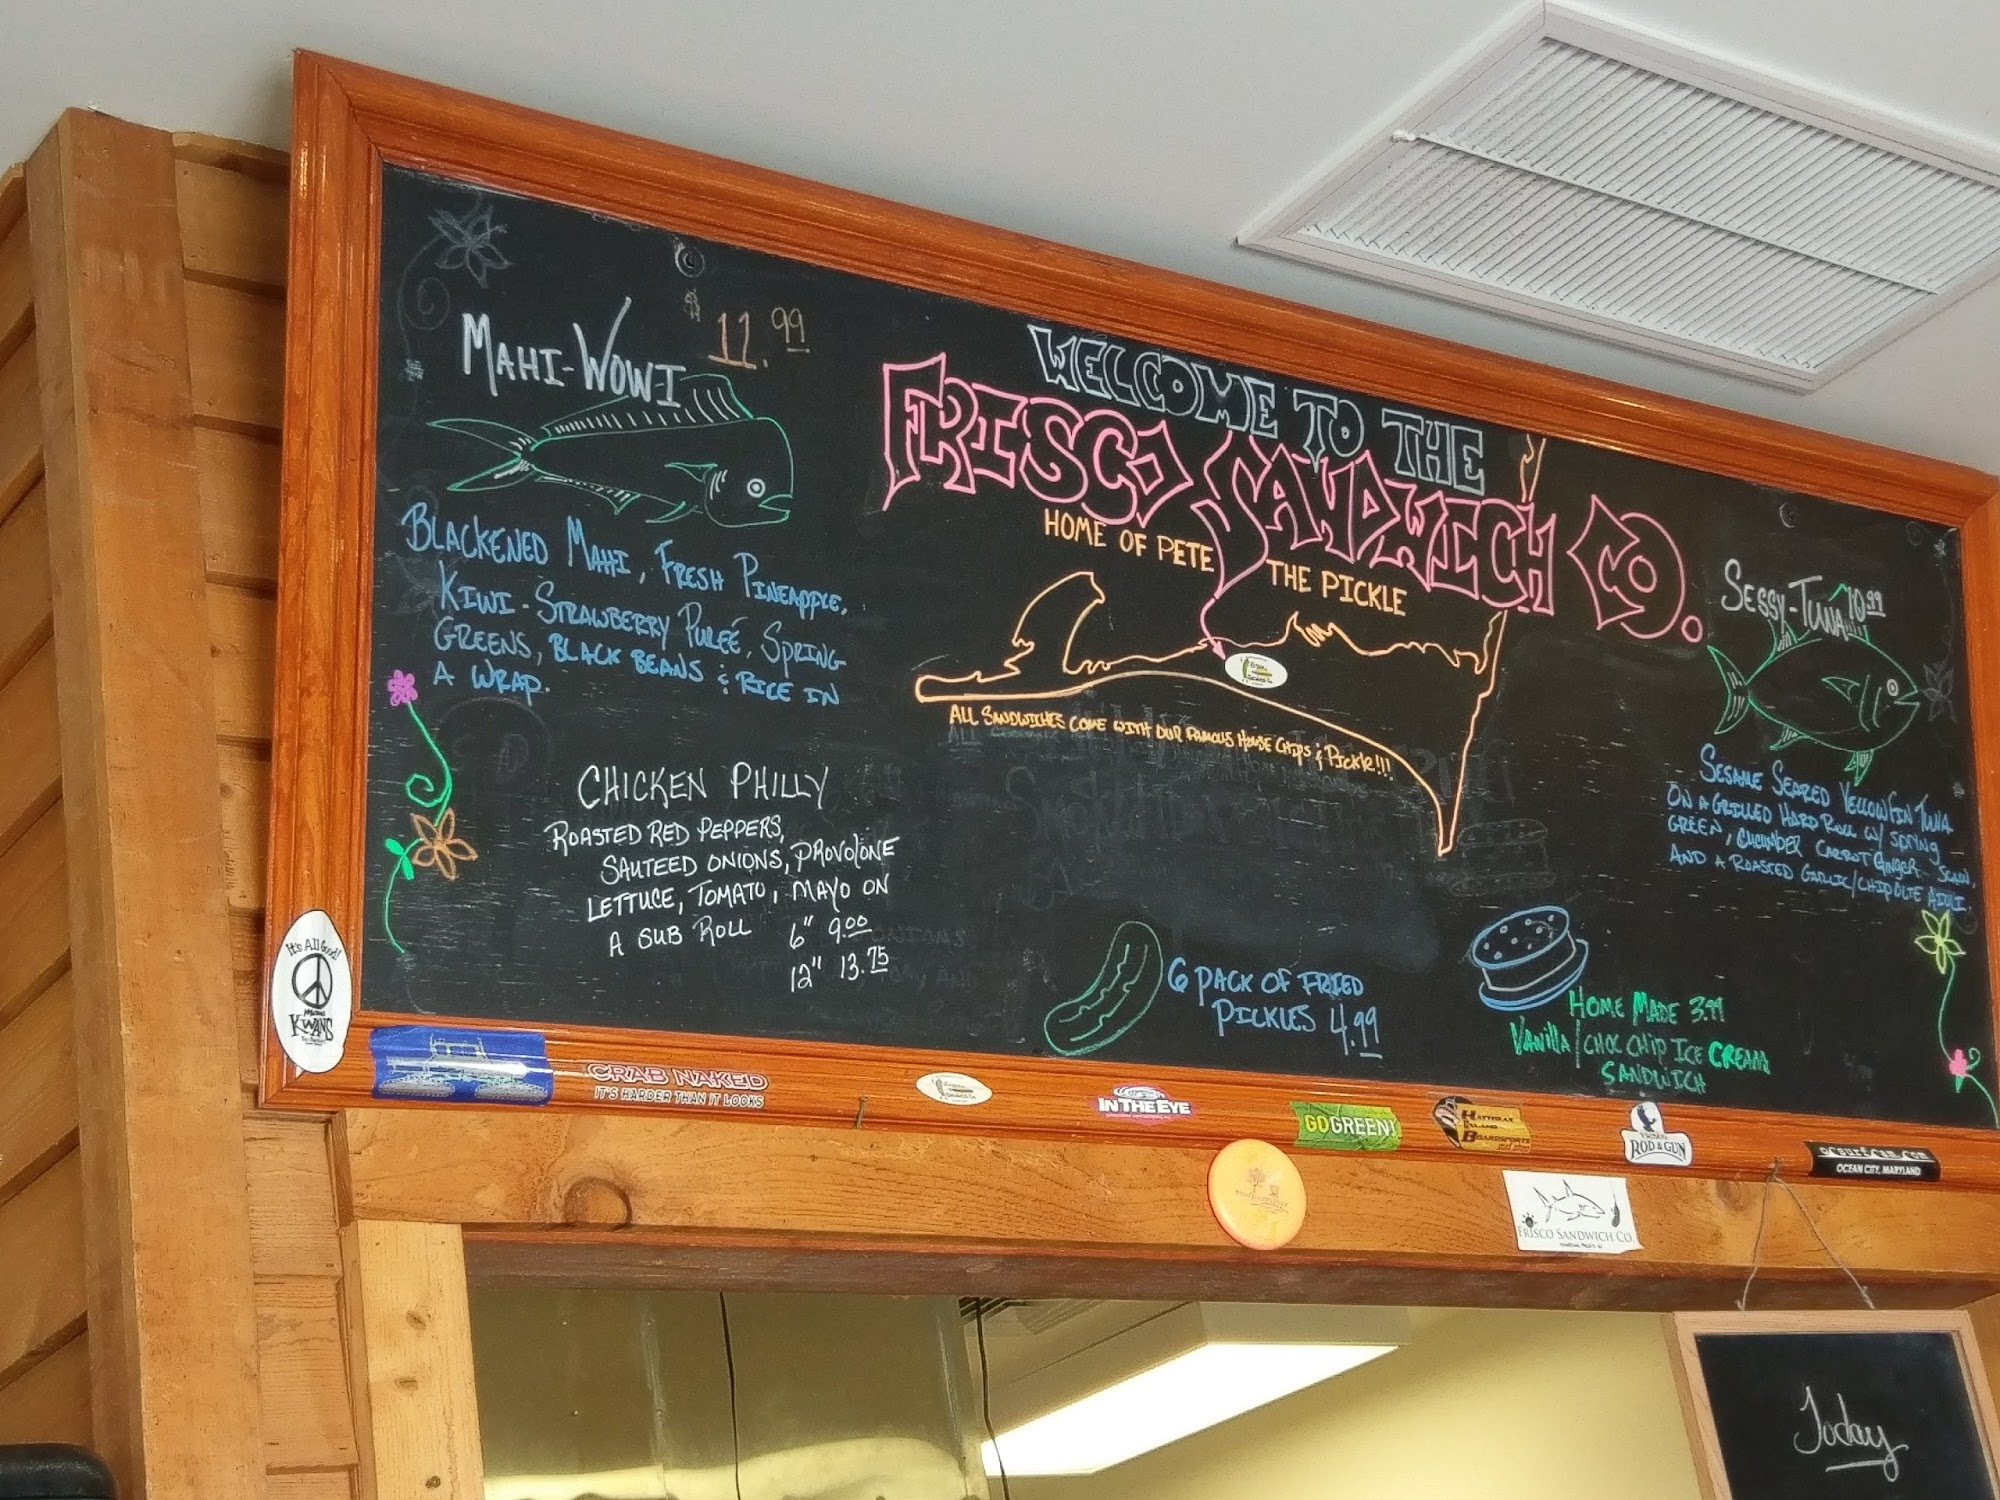 MAHI-WOWI $11.99
BLACKENED MAHI, FRESH PINEAPPLE,
KIWI-STRAWBERRY PUREÉ, SPRING
GREENS, BLACK BEANS & RICE IN
A WRAP.
CHICKEN PHILLY
ROASTED RED PEPPERS,
SAUTEED ONIONS, PROVOLONE
LETTUCE, TOMATO, MAYO ON
A SUB ROLL 6" 9.00
12" 13.75
WELCOME TO THE
FRISCO SANDWICH CO.
HOME OF PETE THE PICKLE
ALL SANDWICHES COME WITH OUR FAMOUS HOUSE CHIPS & PICKLE!!!
6 PACK OF FRIED
PICKLES 4.99
SESSY-TUNA 10.99
SESAME SEARED YELLOWFIN TUNA
ON A GRILLED HARD ROLL W/ SPRING
GREEN, CUCUMBER CARROT GINGER
AND A ROASTED GARLIC/CHIPOLTE AIOLI
HOME MADE 3.99
VANILLA/CHOC CHIP ICE CREAM
SANDWICH
It's All Good!
KWANS
CRAB NAKED
IT'S HARDER THAN IT LOOKS
IN THE EYE
GO GREEN!
HATTERAS
ISLAND
BOARDSPORTS
FRISCO
ROD & GUN
ocsurfcam.com
OCEAN CITY, MARYLAND
FRISCO SANDWICH CO.
Today